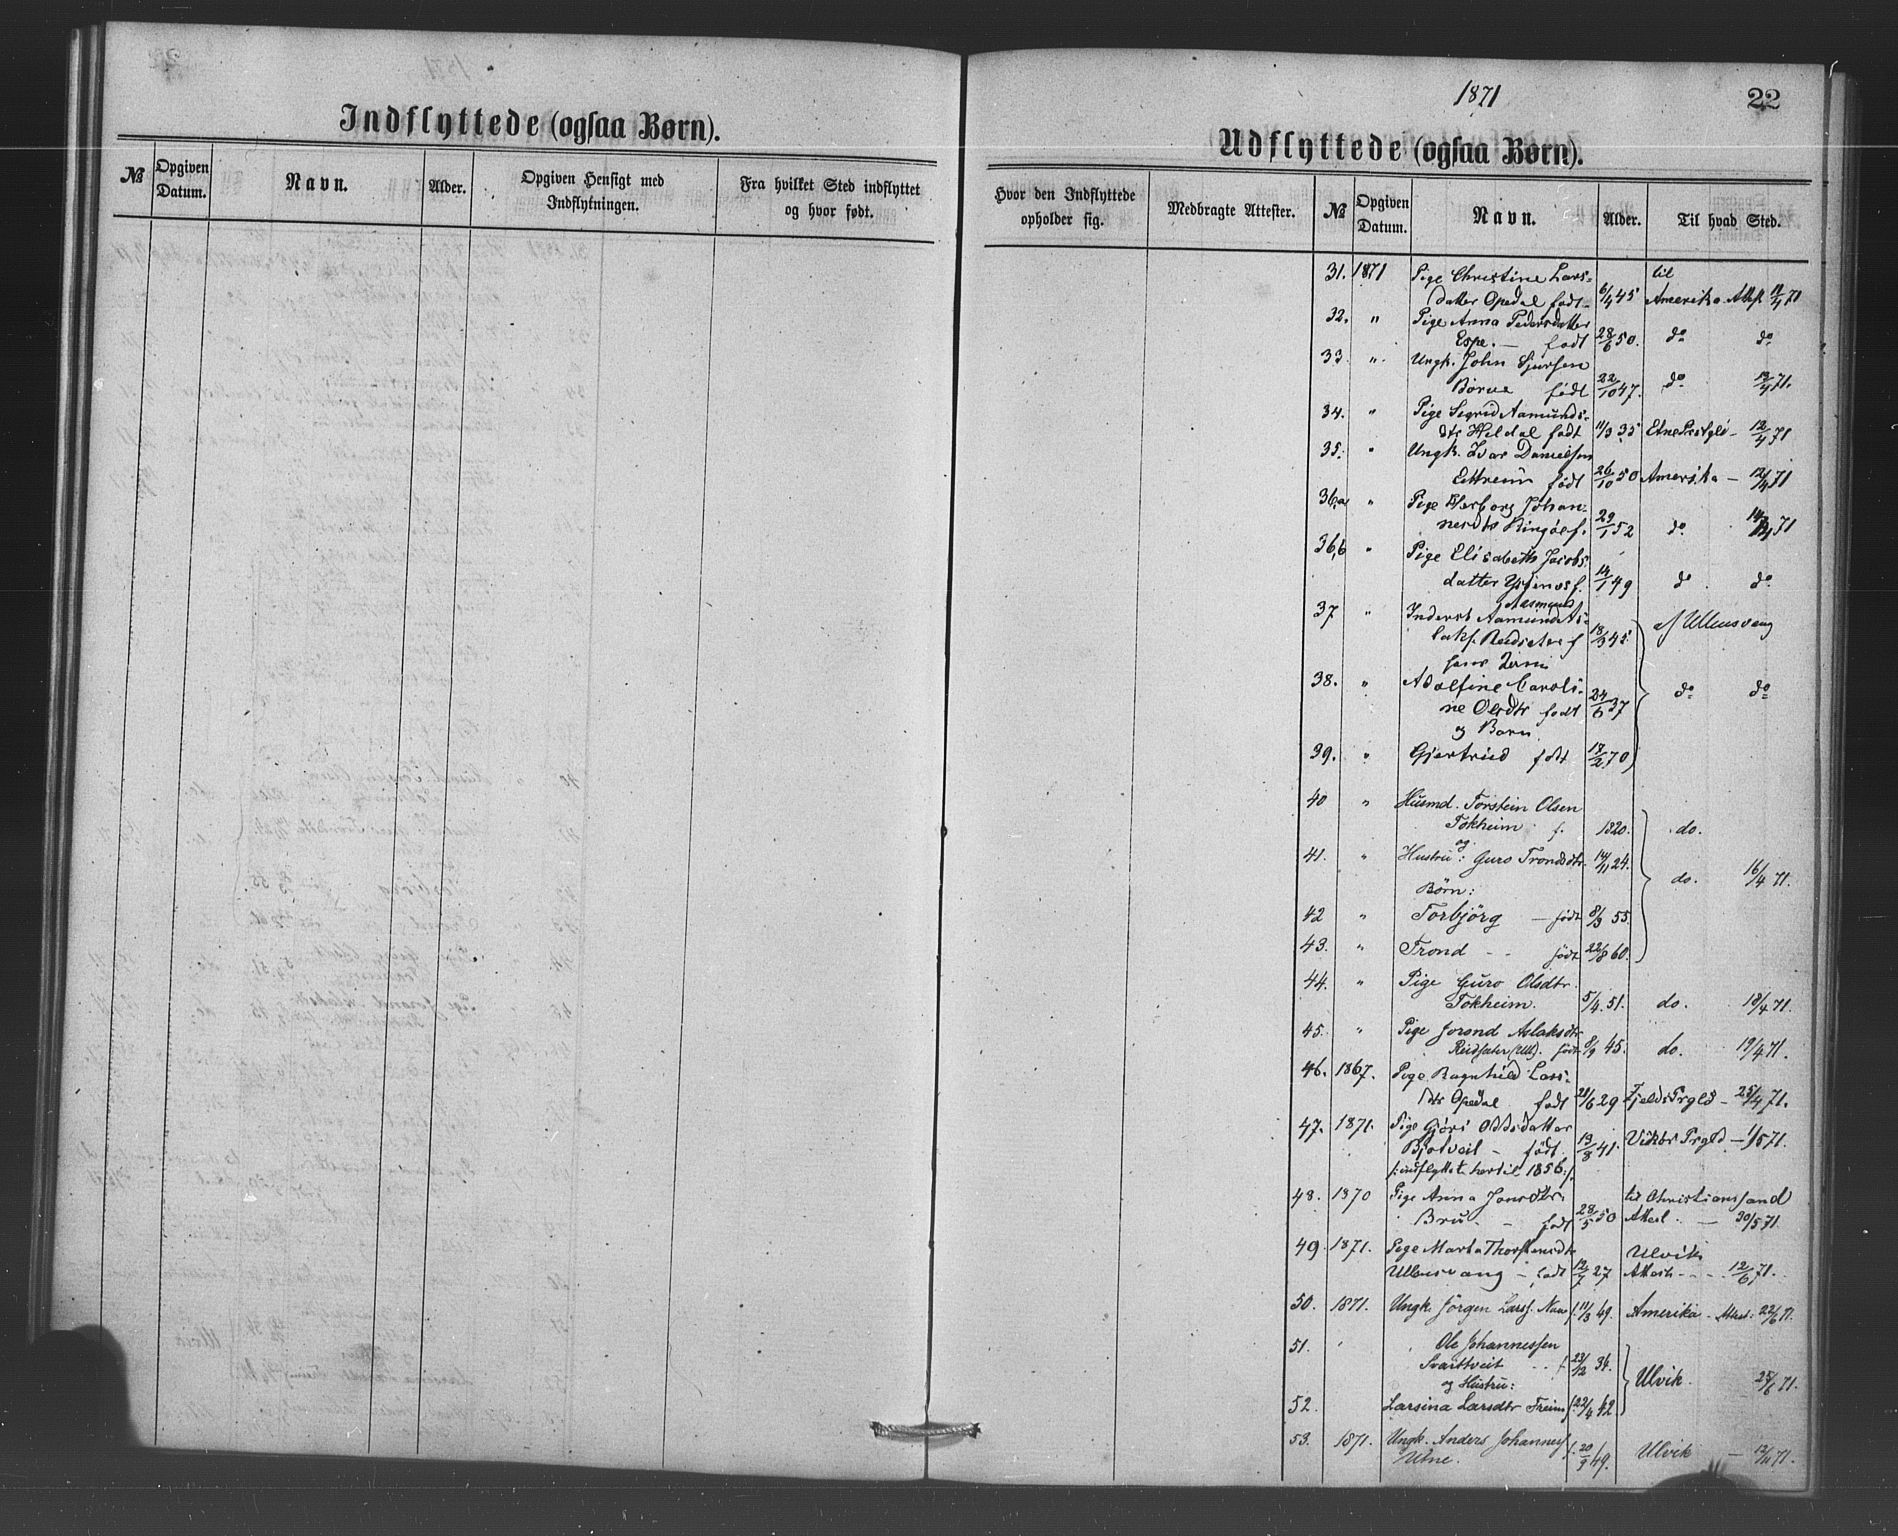 Indflyttede (ogsaa Børn).
№ Opgiven Datum. Navn. Alder. Opgiven Hensigt med Indflytningen. Fra hvilket Sted indflyttet og hvor født.
1871 22
Udflyttede (ogsaa Børn).
Hvor den Indflyttede opholder sig. Medbragte Attester. № Opgiven Datum. Navn. Alder. Til hvad Sted.
31. 1871 Pige Christine Lars- til
datter Opedal født 6/4 45 Amerika Att. 11/4 71
32. " Pige Anna Pedersdatter
Espe. — født 28/6 50. do do
33. " Ungk. John Sjursen
Børve født 22/10 47. do 12/4 71.
34. " Pige Sigrid Aamunds-
dtr Hildal født 11/3 35 Etne Prestgld — 12/4 71
35. " Ungk. Ivar Danielsen
Eittreim født 26/10 50 Amerika — 12/4 71
36,a " Pige Herborg Johan-
nesdtr Ringøe f. 29/1 52 do 71
36,b " Pige Elisabeth Jacobs
datter f. 14/1 49 do. do.
37 " Inderst Aamund As-
Aasmund
laks. Reisæter f 18/3 45. af Ullensvang
hans
38. " Adolfine Caroli-
ne Olsdtr født 24/6 37 do do
og Barn
39. " Gjertrud født 18/2 70
40 " Husmd. Torstein Olsen
Tokheim f. 1820. do.
og
41. " Hustru: Guro Trondsdtr. 14/11 24. do. 16/4 71.
Børn:
42 " Torbjörg — født 8/3 55.
43. " Trond - - født 22/8 60.
44. " Pige Guro Olsdtr.
Tokheim. 5/4. 51. do. 18/4 71.
45. " Pige Jorond Aslaksdtr
Reisæter (Ull). født 8/9 45. do. 19/4 71.
46. 1867. Pige Ragnhild Lars-
dtr Opedal født 21/6 29 Fjelds Prgld — 25/4 71.
47. 1871. Pige Gjöri Oddsdatter
Bjotveit — født 13/8 41. Vikørs Prgld — 1/5 71.
/: indflyttet hertil 1856:/.
48. 1870 Pige Anna Jonsdtr. til Christianssand
Bru — født 28/5 50 Attest. — 30/5 71.
49. 1871. Pige Marta Thorstensdtr Ulvik
Ullensvang — født 12/7 27 Attest - - - 12/6 71.
50. 1871. Ungk. Jörgen Larss. Naa f. 11/3 49. Amerika. Attest: 22/6 71.
51. " " Ole Johannessen
Svartveit - - f. 23/12 36.
og Hustru: Ulvik. 25/6 71.
52. Larsina Larsdtr Freim f. 22/4 42
53. 1871. Ungk. Anders Johanness
Utne. f. 20/9 49. Ulvik — 12/11 71.